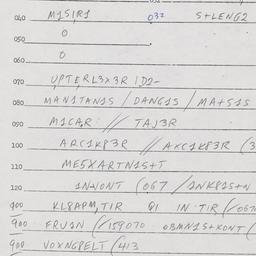 040 M1SIR1 032 S+LENG2
050 0
060 0
070 UPTERL3X3R 1D2-
080 MAN1TAN1S / DANG1S / MA+S1S
090 M1CAR // TAJ3R
100 ARC1KP3R // AXC1KP3R (3
110 ME5XARTN1S+T
120 1N+VONT (067 / 1NKP1S+N
900 KL8APM, TIR 81 IN TIR (067
900 ERV1N (159070 OBMN1S+KONT (
900 VOXNGPELT (413